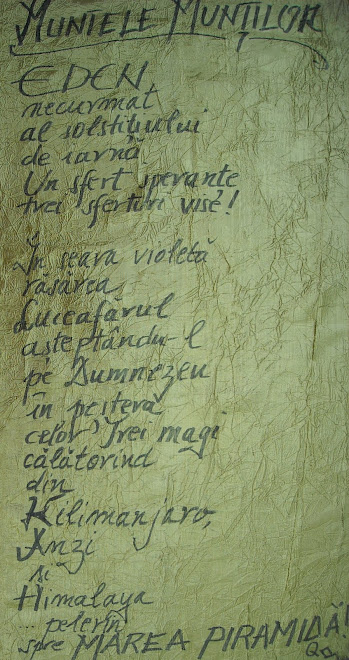 MUNTELE MUNȚILOR
EDEN
necurmat
al solstițiului
de iarnă.
Un sfert sperante
trei sferturi vise!
În seara violetă
răsărea
Luceafărul
așteptându-l
pe Dumnezeu
în peștera
celor Trei magi
călătorind
din
Kilimanjaro,
Anzi
și
Himalaya
... pelerin
spre MAREA PIRAMIDĂ!